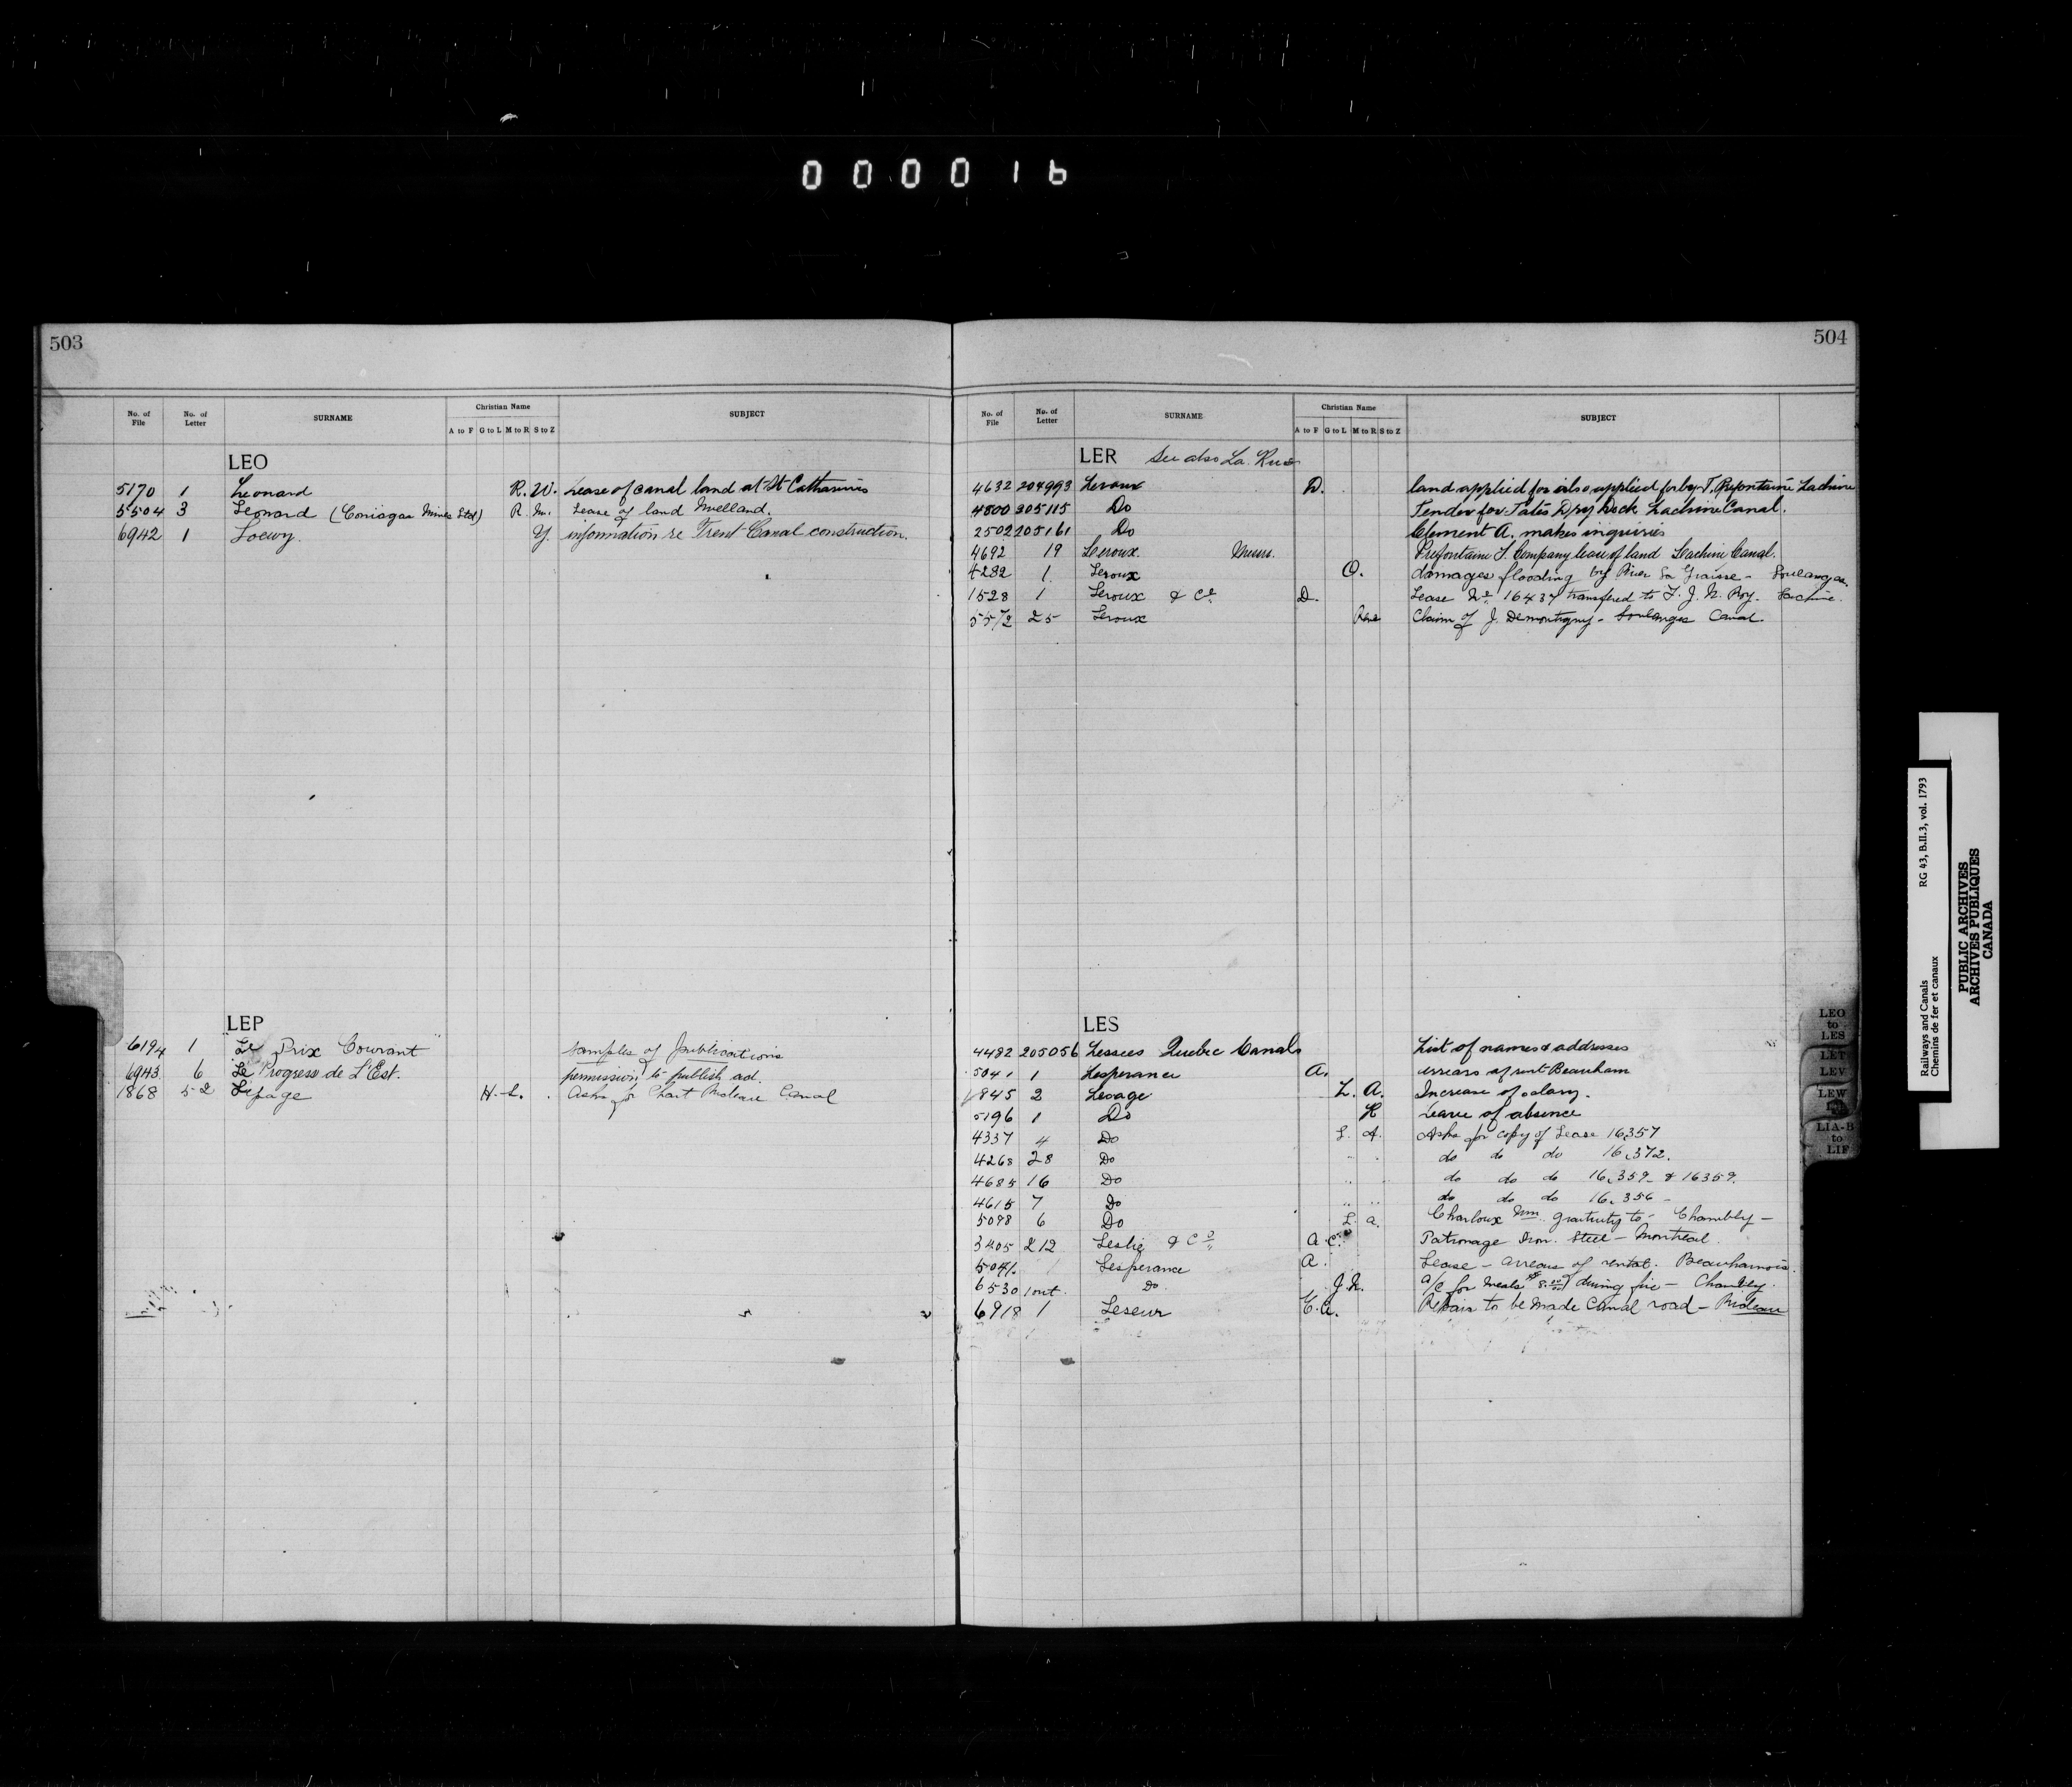 000016
503
No. of File No. of Letter SURNAME Christian Name A to F G to L M to R S to Z SUBJECT
LEO
5170 1 Leonard R. W. Lease of canal land at St Catharines
5504 3 Leonard (Coniagas Mines Ltd) R. M. Lease of land Welland.
6942 1 Loewy. Y. information re Trent Canal construction.
LEP
6194 1 "Le Prix Courant" samples of publications
6943 6 Le Progress de L'Est. permission to publish ad.
1868 52 Lepage H. L. Asks for Chart Rideau Canal
504
No. of File No. of Letter SURNAME Christian Name A to F G to L M to R S to Z SUBJECT
LER See also La Rue
4632 204993 Leroux D. land applied for also applied for by T. Prefontaine Lachine
4800 205115 Do Tender for Tate's Dry Dock Lachine Canal.
2502 205161 Do Clement A. makes inquiries
4692 19 Leroux. Messrs. Prefontaine T. Company lease of land Lachine Canal.
4282 1 Leroux O. damages flooding by River La Graisse - Soulanges.
1528 1 Leroux & Co. D. Lease No. 16437 transfered to F. J. N. Roy. Lachine.
5572 25 Leroux Rene Claim of J. Demontigny - Soulanges Canal.
LES
4482 205056 Lessees Quebec Canals List of names & addresses
5041 1 Lesperance A. arrears of rent Beauharn
1845 2 Lesage L. A. Increase of salary.
5196 1 Do R Leave of absence
4337 4 Do L. A. Asks for copy of Lease 16357
4268 28 Do " " do do do 16,372.
4685 16 Do " " do do do 16,359 & 16359.
4615 7 Do " " do do do 16,356 -
5098 6 Do L. a. Wm. gratuity to - Chambly -
3405 212 Leslie & Co. A. C. Patronage Iron. Steel - Montreal.
5041. 1 Lesperance A. Lease - arrears of rental. Beauharnois.
6530 1 out. Do. J. N. a/c for meals during fire - Chambly.
6918 1 Leseur E. A. Repairs to be made Canal road - Rideau
LEO to LES
LET
LEV
LEW
LIA-B to LIF
Railways and Canals RG 43, B.II.3, vol. 1793
Chemins de fer et canaux
PUBLIC ARCHIVES
ARCHIVES PUBLIQUES
CANADA